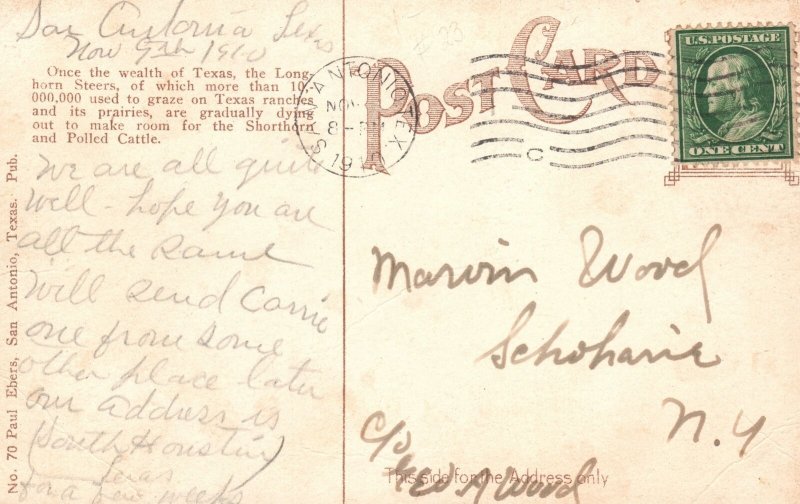 San Antonia Texas
Nov 9th 1910
Once the wealth of Texas, the Long-
horn Steers, of which more than 10,
000,000 used to graze on Texas ranches
and its prairies, are gradually dying
out to make room for the Shorthorn
and Polled Cattle.
We are all quite
well - hope you are
all the same
Will send Carrie
one from some
other place later
our address is
(South Houston)
Texas
for a few weeks
No. 70 Paul Ebers, San Antonio, Texas. Pub.
# 23
POST CARD
SAN ANTONIO, TEX.
NOV
8 - PM
191
C
U.S. POSTAGE
ONE CENT
Marvin Wood
Schoharie
N. Y
c/o
Geo A Wood
This side for the Address only